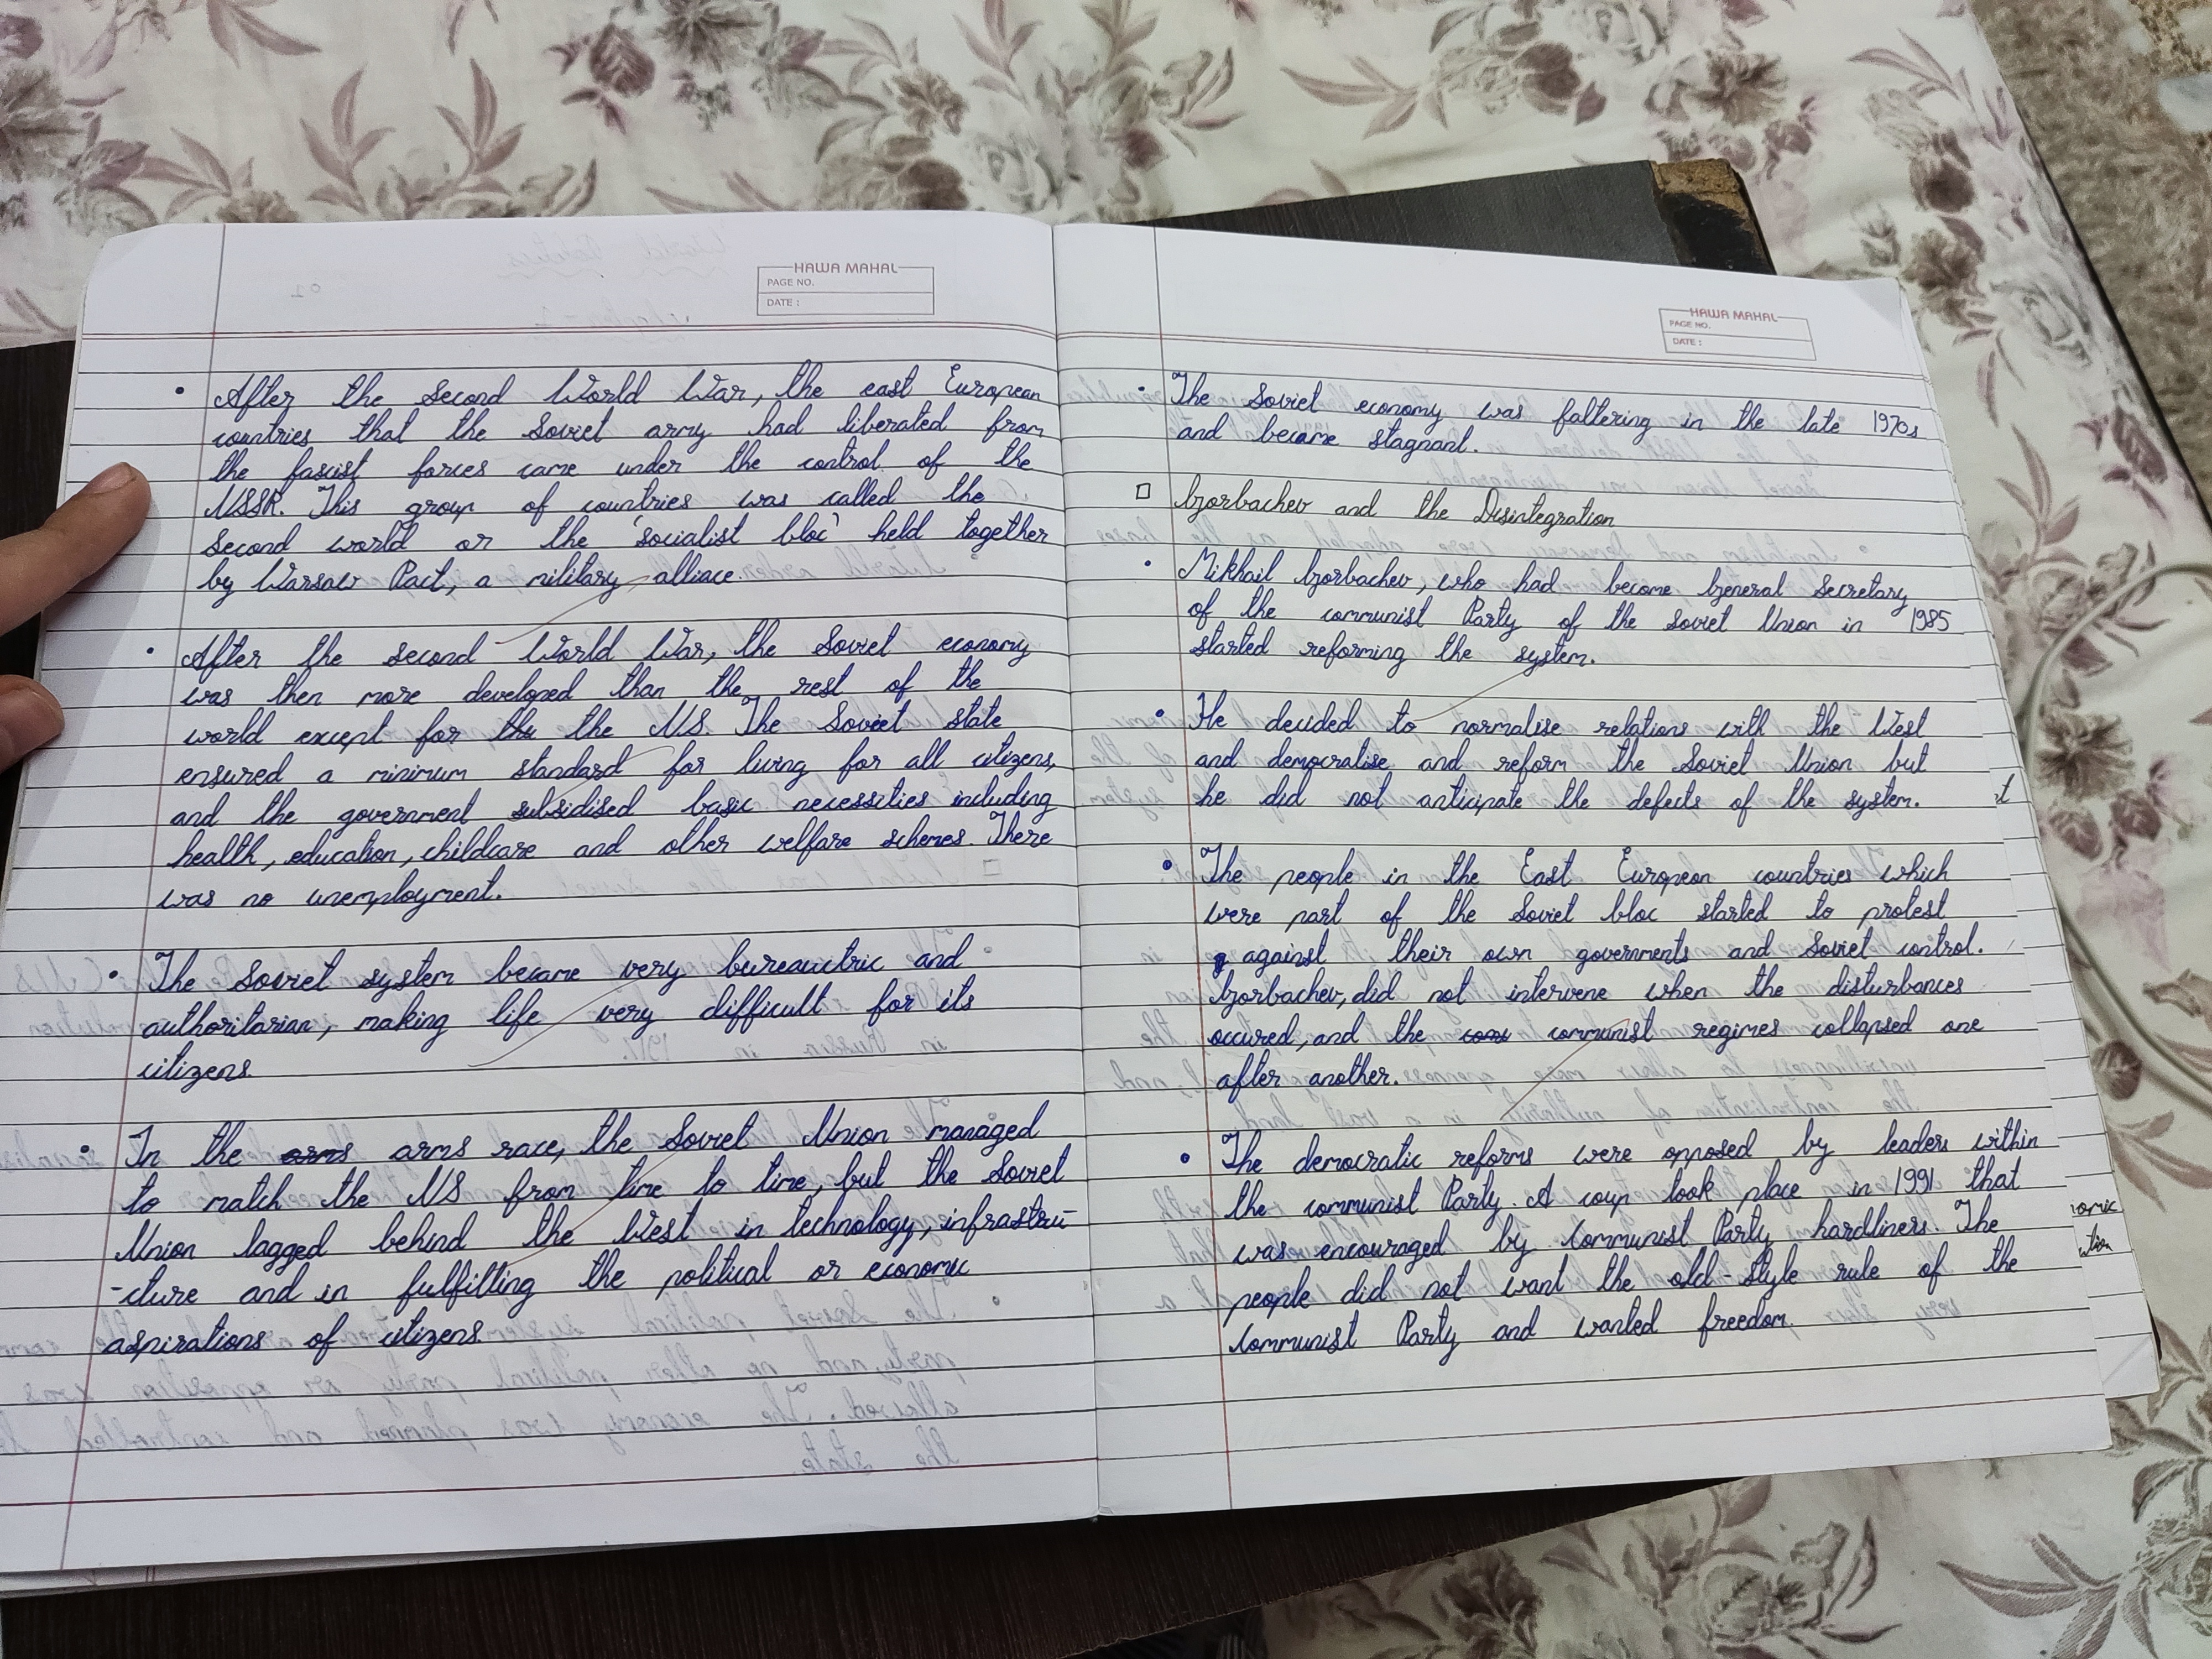 HAWA MAHAL
PAGE NO.
DATE :
• After the second World War, the east European
countries that the Soviet army had liberated from
the fascist forces came under the control of the
USSR. This group of countries was called the
second world or the 'socialist bloc' held together
by Warsaw Pact, a military alliace.
• After the second World War, the Soviet economy
was then more developed than the rest of the
world except for the the US. The Soviet state
ensured a minimum standard for living for all citizens,
and the government subsidised basic necessities including
health, education, childcare and other welfare schemes. There
was no unemployment.
• The Soviet system became very bureauctric and
authoritarian, making life very difficult for its
citizens.
• In the arms arms race, the Soviet Union managed
to match the US from time to time, but the Soviet
Union lagged behind the West in technology, infrastru-
-cture and in fulfilling the political or economic
aspirations of citizens.
HAWA MAHAL
PAGE NO.
DATE :
• The Soviet economy was faltering in the late 1970s
and became stagnant.
□ Gorbachev and the Disintegration
• Mikhail Gorbachev, who had become General Secretary
of the communist Party of the Soviet Union in 1985
started reforming the system.
• He decided to normalise relations with the West
and democratise and reform the Soviet Union but
he did not anticipate the defects of the system.
• The people in the East European countries which
were part of the Soviet bloc started to protest
against their own governments and Soviet control.
Gorbachev, did not intervene when the disturbances
occured, and the com communist regimes collapsed one
after another.
• The democratic reforms were opposed by leaders within
the communist Party. A coup took place in 1991 that
was encouraged by Communist Party hardliners. The
people did not want the old-style rule of the
Communist Party and wanted freedom.